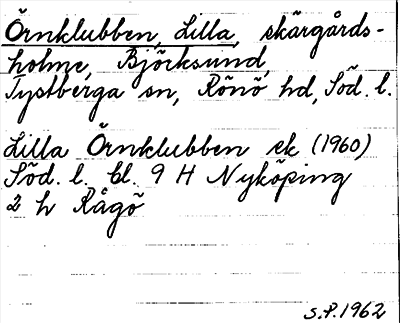 Örnklubben, Lilla, skärgårds-
holme, Björksund,
Tystberga sn, Rönö hd, Söd. l.
Lilla Örnklubben ek (1960)
Söd. l. bl. 9 H Nyköping
2 h Rågö
S.P. 1962